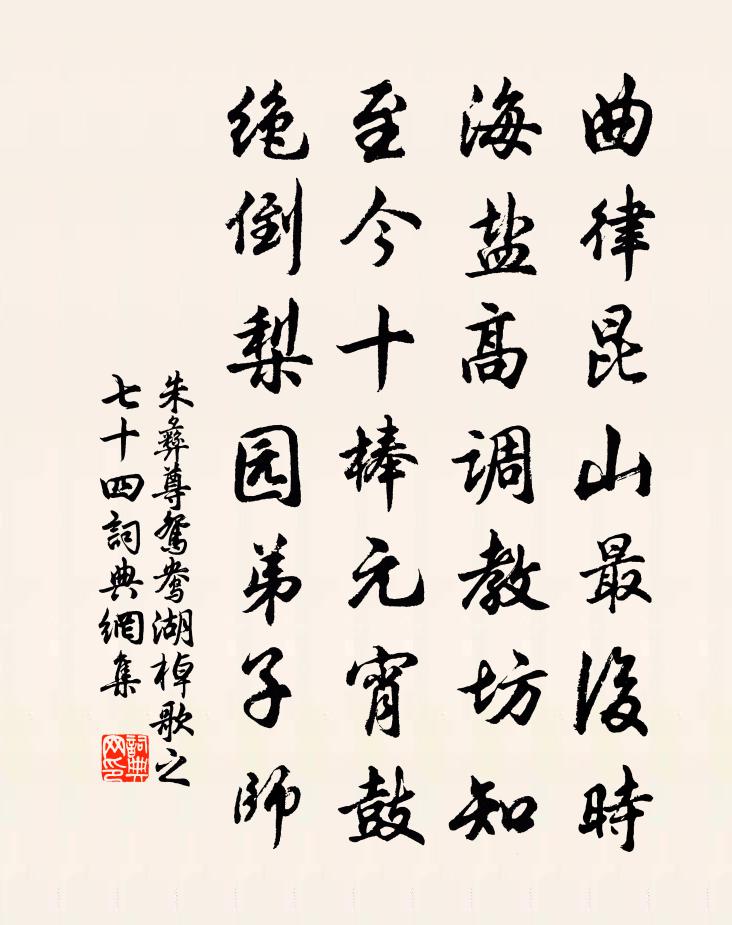 曲律昆山最後時
海盐高调教坊知
至今十棒元宵鼓
绝倒梨园弟子师
朱彝尊鴛鴦湖棹歌之
七十四詞典網集
詞典网印